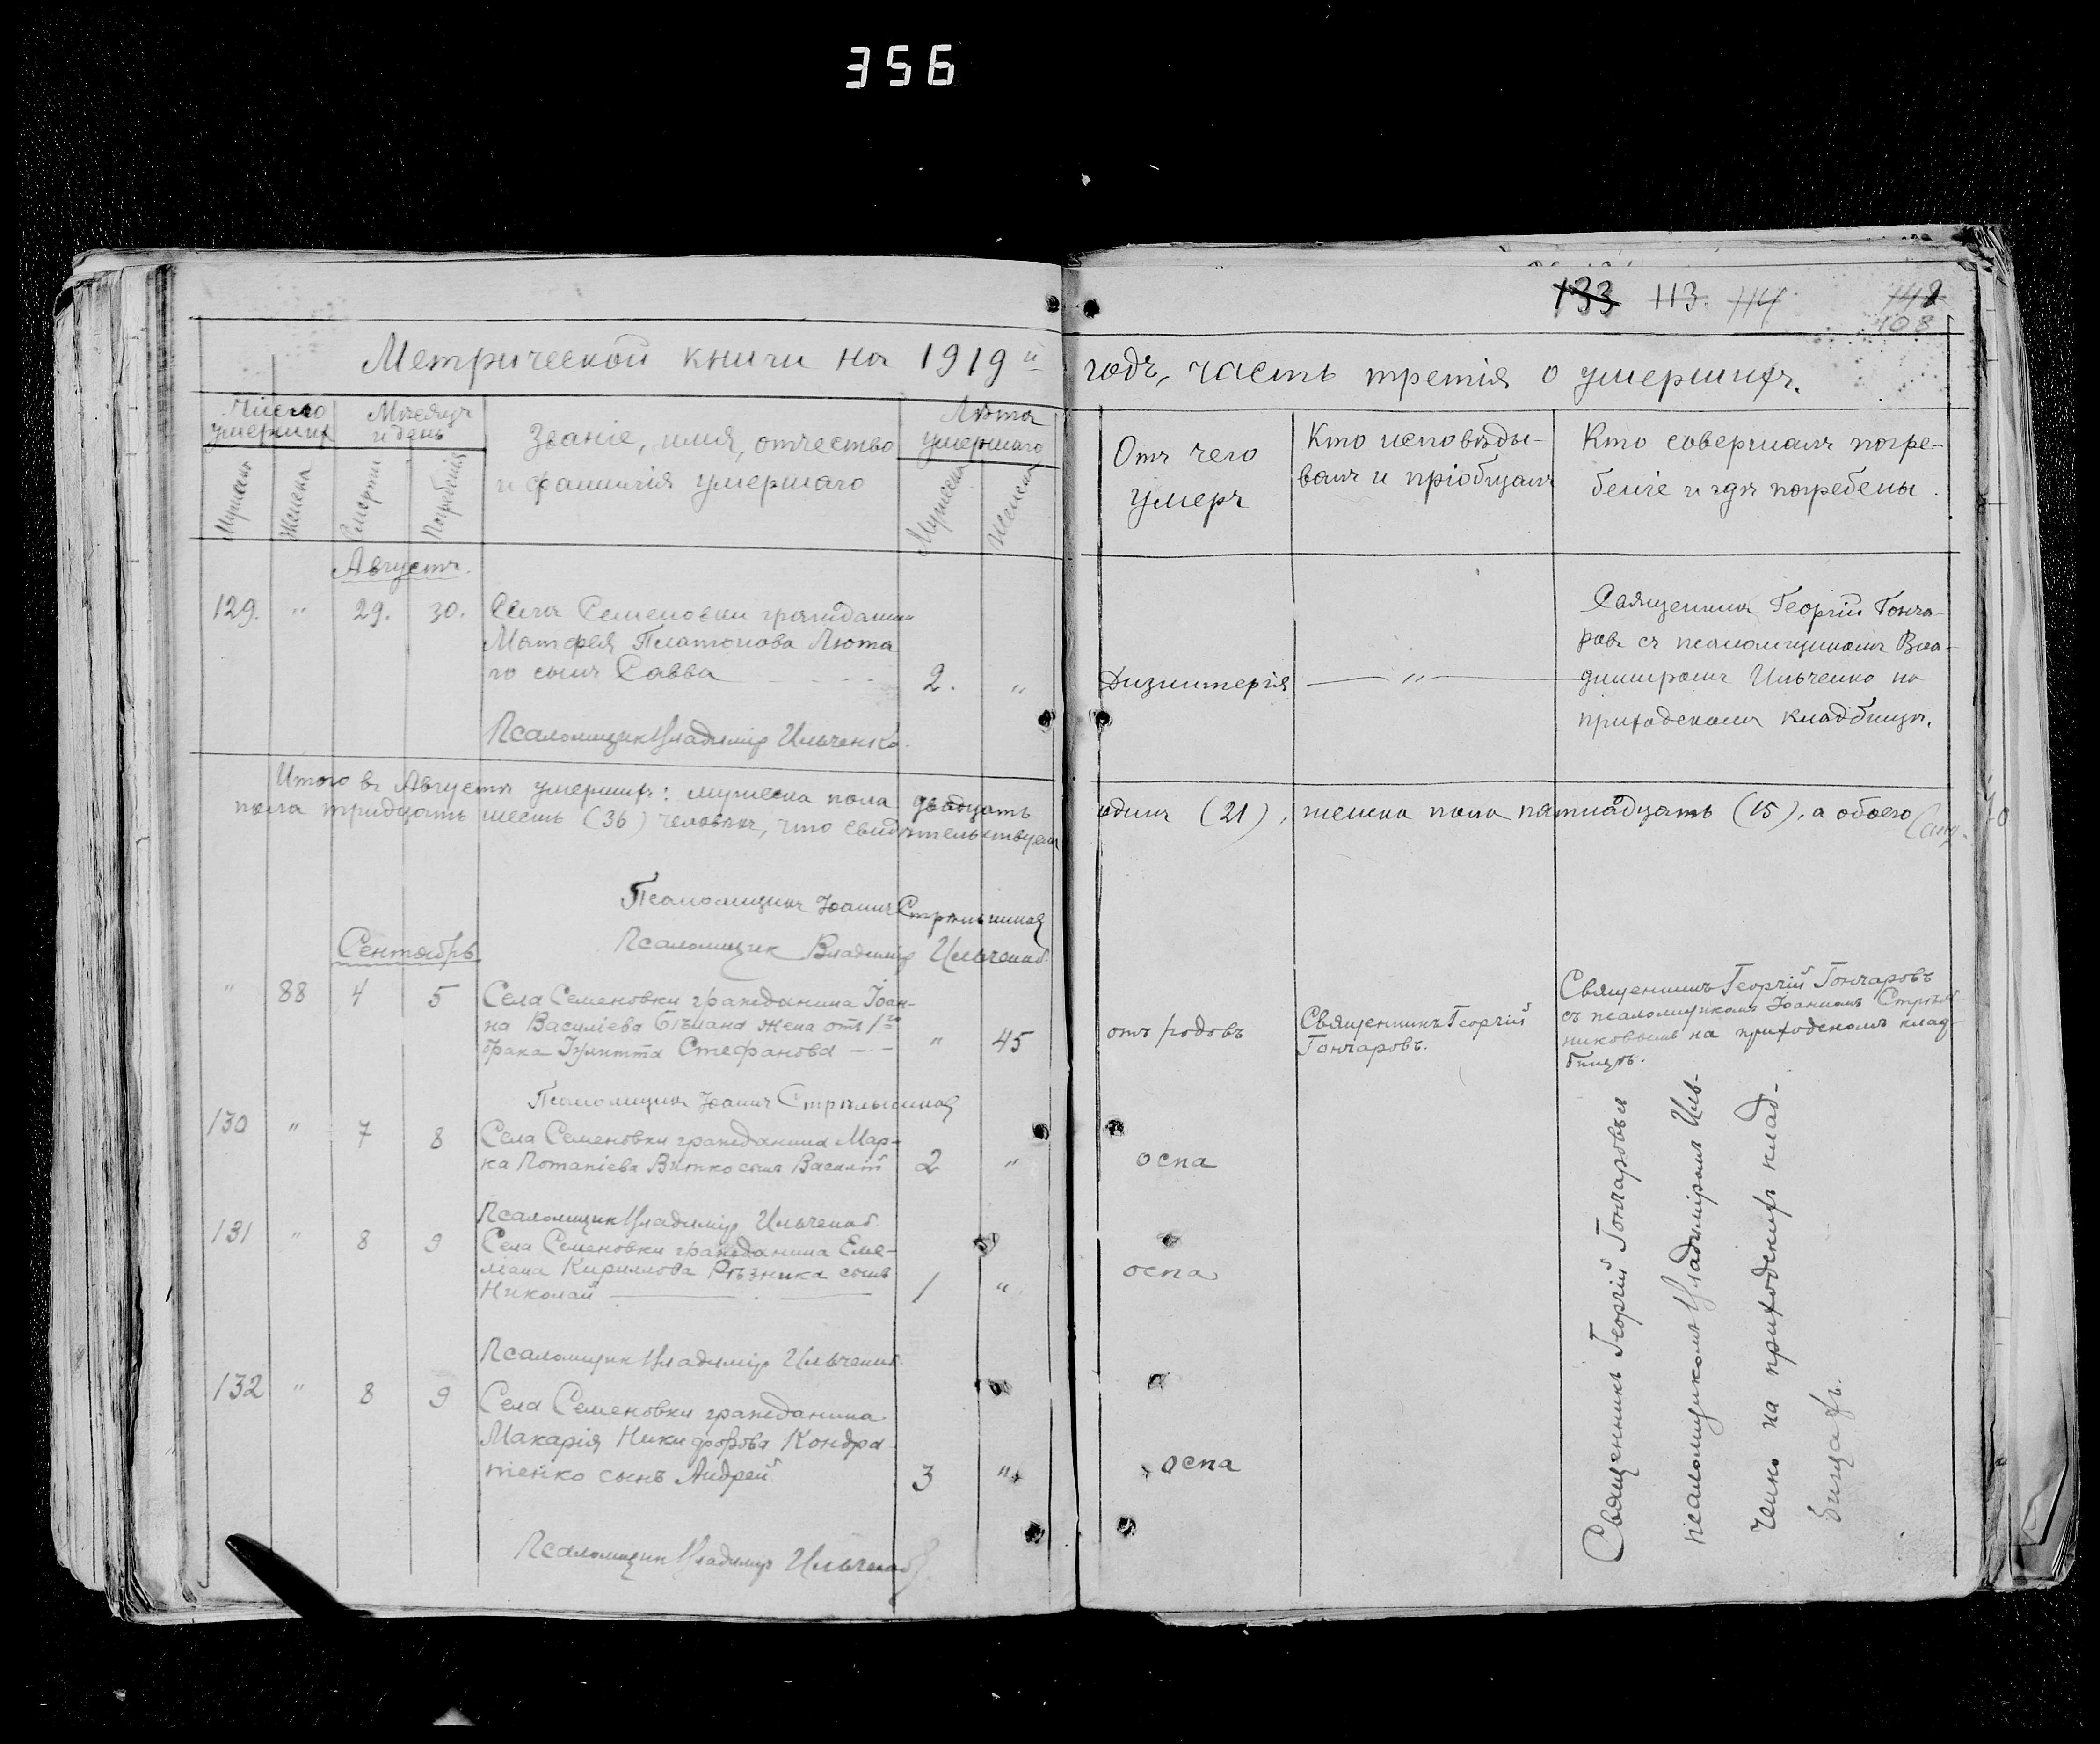 356
133 113. 114 142
108
Метрической книги на 1919й годъ, часть третія о умершихъ.
Число умершихъ
Мѣсяцъ и день
Званіе, имя, отчество и фамилія умершаго
Лѣта умершаго
Отъ чего умеръ
Кто исповѣды-
валъ и пріобщалъ
Кто совершалъ погре-
беніе и гдѣ погребены.
Мужеска
Женска
Смерти
Погребенія
Мужеска
Женска
Августъ.
129. " 29. 30. Села Семеновки гражданина
Матфея Платонова Люта
го сынъ Савва 2. "
Дизинтерія — " —
Священникъ Георгій Гонча-
ровъ съ псаломщикомъ Вла-
диміромъ Ильченко на
приходскомъ кладбищѣ.
Псаломщикъ Владимір Ильченко.
Итого въ Августѣ умершихъ: мужеска пола двадцать одинъ (21), женска пола пятнадцать (15), а обоего
пола тридцать шесть (36) человѣкъ, что свидѣтельствуемъ
Псаломщикъ Іоаннъ Стрѣльников
Псаломщик Владимір Ильченко
Сентябрь
" 88 4 5 Села Семеновки гражданина Іоан-
на Василіева Бѣлана жена отъ 1го
брака Іулитта Стефанова — " 45
отъ родовъ
Священникъ Георгій
Гончаровъ.
Священникъ Георгій Гончаровъ
съ псаломщикомъ Іоанномъ Стрѣль
никовымъ на приходскомъ клад
бищѣ.
Псаломщикъ Іоаннъ Стрѣльников
130 " 7 8 Села Семеновки гражданина Мар-
ка Потапіева Витко сынъ Василій 2 "
оспа
Псаломщик Владимір Ильченко
131 " 8 9 Села Семеновки гражданина Еме-
ліана Кириллова Рѣзника сынъ
Николай — 1 "
оспа
Псаломщик Владимір Ильченко
132 " 8 9 Села Семеновки гражданина
Макарія Никифорова Кондра
тенко сынъ Андрей 3 "
оспа
Псаломщик Владимір Ильченко
Священникъ Георгій Гончаровъ
псаломщикомъ Владиміромъ Иль-
ченко на приходскихъ клад-
бищахъ.